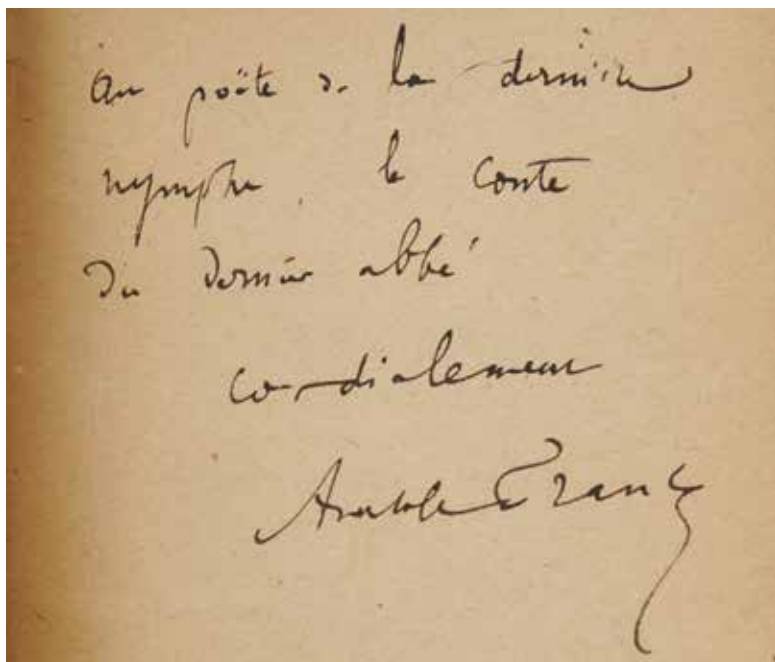 Au poëte de la dernière
nymphe, le conte
du dernier abbé
cordialement
Anatole France